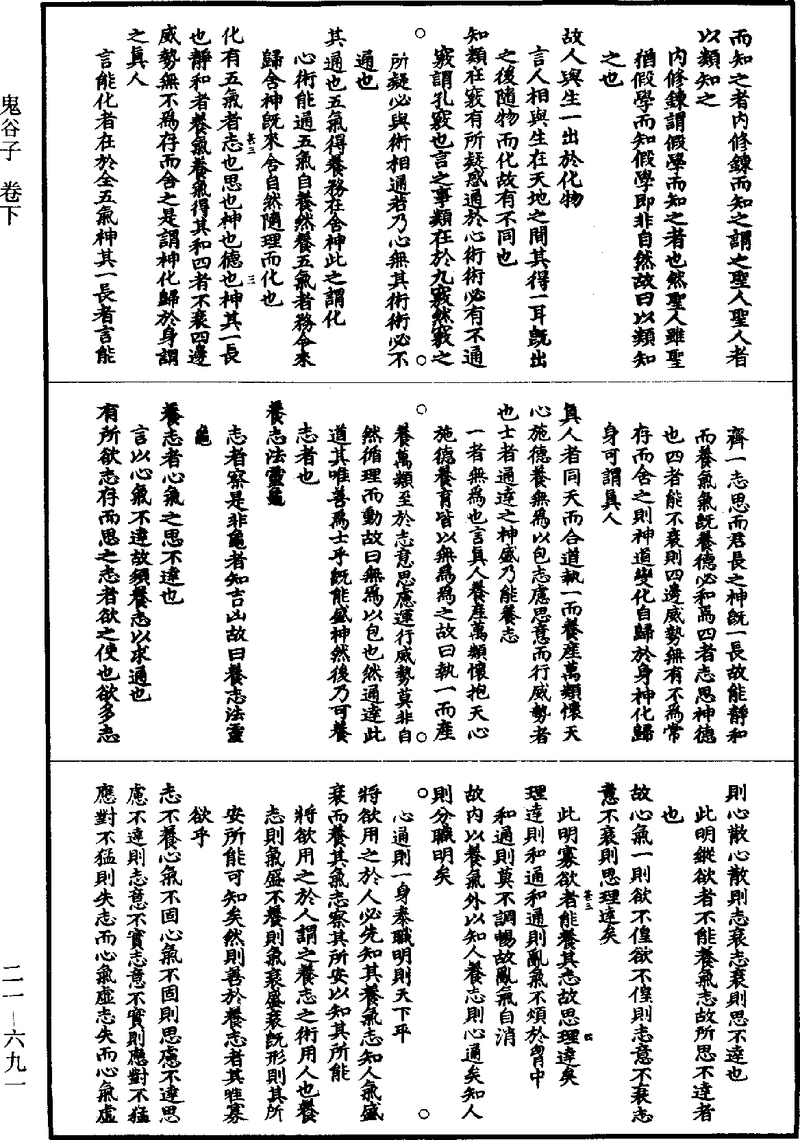 鬼谷子　卷下
而知之者内修鍊而知之謂之聖人聖人者
以類知之
内修鍊謂假學而知之者也然聖人雖聖
猶假學而知假學即非自然故曰以類知
之也
故人與生一出於化物
言人相與生在天地之間其得一耳既出
之後隨物而化故有不同也
知類在竅有所疑惑通於心術術必有不通
竅謂孔竅也言之事類在於九竅然竅之
所疑必與術相通若乃心無其術術必不
通也
其通也五氣得養務在舍神此之謂化
心術能通五氣自養然養五氣者務令來
歸舍神既來舍自然隨理而化也
化有五氣者志也思也神也德也神其一長
也靜和者養氣養氣得其和四者不衰四邊
威勢無不爲存而舍之是謂神化歸於身謂
之真人
言能化者在於全五氣神其一長者言能
甚三
三
齊一志思而君長之神既一長故能靜和
而養氣氣既養德必和焉四者志思神德
也四者能不衰則四邊威勢無有不爲常
存而舍之則神道變化自歸於身神化歸
身可謂真人
真人者同天而合道執一而養產萬類懷天
心施德養無爲以包志慮思意而行威勢者
也士者通達之神盛乃能養志
一者無爲也言真人養產萬類懷抱天心
施德養育皆以無爲爲之故曰執一而產
養萬類至於志意思慮運行威勢莫非自
然循理而動故曰無爲以包也然通達此
道其唯善爲士乎既能盛神然後乃可養
志者也
養志法靈龜
志者察是非龜者知吉凶故曰養志法靈
龜
養志者心氣之思不達也
言以心氣不達故須養志以求通也
有所欲志存而思之志者欲之使也欲多志
則心散心散則志衰志衰則思不達也
此明縱欲者不能養氣志故所思不達者
也
故心氣一則欲不偟欲不偟則志意不衰志
意不衰則思理達矣
此明寡欲者能養其志故思理達矣
理達則和通和通則亂氣不煩於胷中
和通則莫不調暢故亂氣自消
故内以養氣外以知人養志則心通矣知人
則分職明矣
心通則一身泰職明則天下平
將欲用之於人必先知其養氣志知人氣盛
衰而養其氣志察其所安以知其所能
將欲用之於人謂之養志之術用人也養
志則氣盛不養則氣衰盛衰既形則其所
安所能可知矣然則善於養志者其唯寡
欲乎
志不養心氣不固心氣不固則思慮不達思
慮不達則志意不實志意不實則應對不猛
應對不猛則失志而心氣虛志失而心氣虛
甚三
二一—六九一